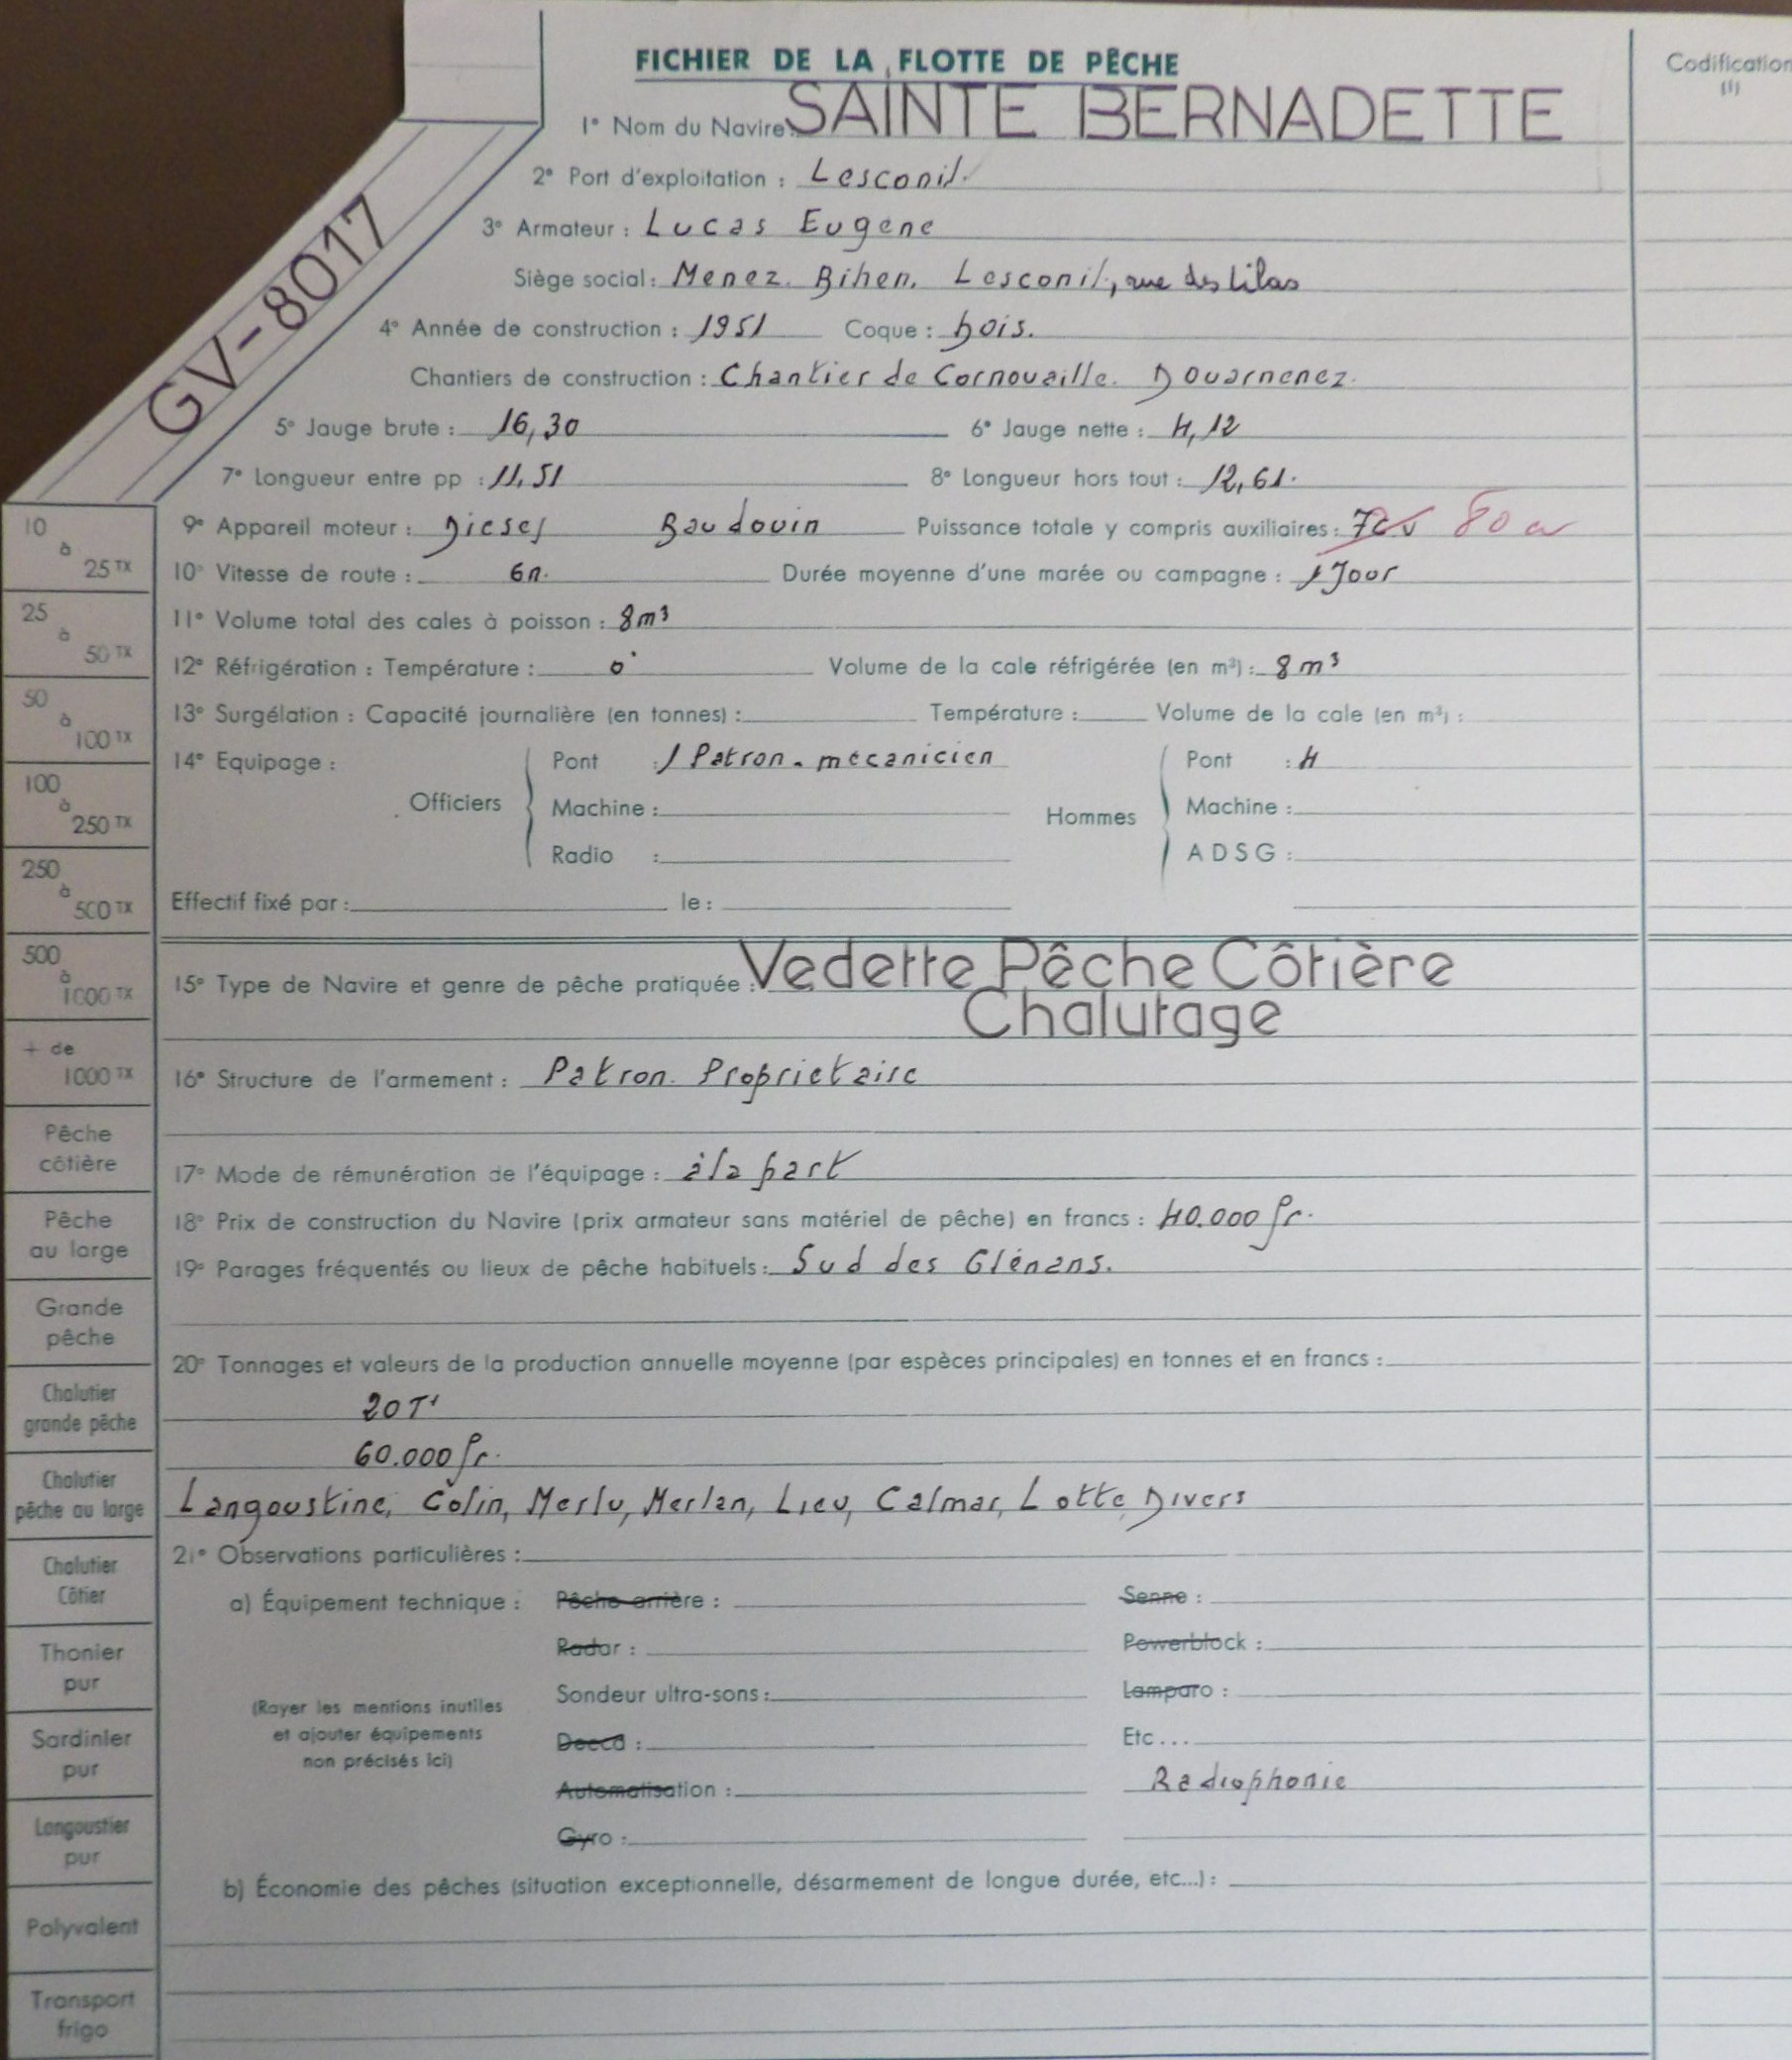 FICHIER DE LA FLOTTE DE PÊCHE
Codification
(1)
1° Nom du Navire : SAINTE BERNADETTE
2° Port d'exploitation : Lesconil.
GV-8017
3° Armateur : Lucas Eugène
Siège social : Menez. Bihen. Lesconil, rue des Lilas
4° Année de construction : 1951 Coque : bois.
Chantiers de construction : Chantier de Cornouaille. Douarnenez.
5° Jauge brute : 16,30 6° Jauge nette : 4,12
7° Longueur entre pp : 11,51 8° Longueur hors tout : 12,61.
9° Appareil moteur : Diesel Baudouin Puissance totale y compris auxiliaires : 80 cv
10° Vitesse de route : 6n. Durée moyenne d'une marée ou campagne : 1 Jour
11° Volume total des cales à poisson : 8m³
12° Réfrigération : Température : 0° Volume de la cale réfrigérée (en m³) : 8m³
13° Surgélation : Capacité journalière (en tonnes) : Température : Volume de la cale (en m³) :
14° Equipage : Pont : 1 Patron. mécanicien Pont : 4
Officiers Machine : Hommes Machine :
Radio : ADSG :
Effectif fixé par : le :
15° Type de Navire et genre de pêche pratiquée : Vedette Pêche Côtière
Chalutage
16° Structure de l'armement : Patron. Propriétaire
17° Mode de rémunération de l'équipage : à la part
18° Prix de construction du Navire (prix armateur sans matériel de pêche) en francs : 40.000 fr.
19° Parages fréquentés ou lieux de pêche habituels : Sud des Glénans.
20° Tonnages et valeurs de la production annuelle moyenne (par espèces principales) en tonnes et en francs :
20 T
60.000 fr.
Langoustine, Colin, Merlu, Merlan, Lieu, Calmar, Lotte, Divers
21° Observations particulières :
a) Équipement technique : Pêche arrière : Senne :
Radar : Powerblock :
Sondeur ultra-sons : Lamparo :
(Rayer les mentions inutiles
et ajouter équipements
non précisés ici)
Decca : Etc...
Automatisation : Radiophonie
Gyro :
b) Économie des pêches (situation exceptionnelle, désarmement de longue durée, etc...) :
10
à
25 TX
25
à
50 TX
50
à
100 TX
100
à
250 TX
250
à
500 TX
500
à
1000 TX
+ de
1000 TX
Pêche
côtière
Pêche
au large
Grande
pêche
Chalutier
grande pêche
Chalutier
pêche au large
Chalutier
Côtier
Thonier
pur
Sardinier
pur
Langoustier
pur
Polyvalent
Transport
frigo